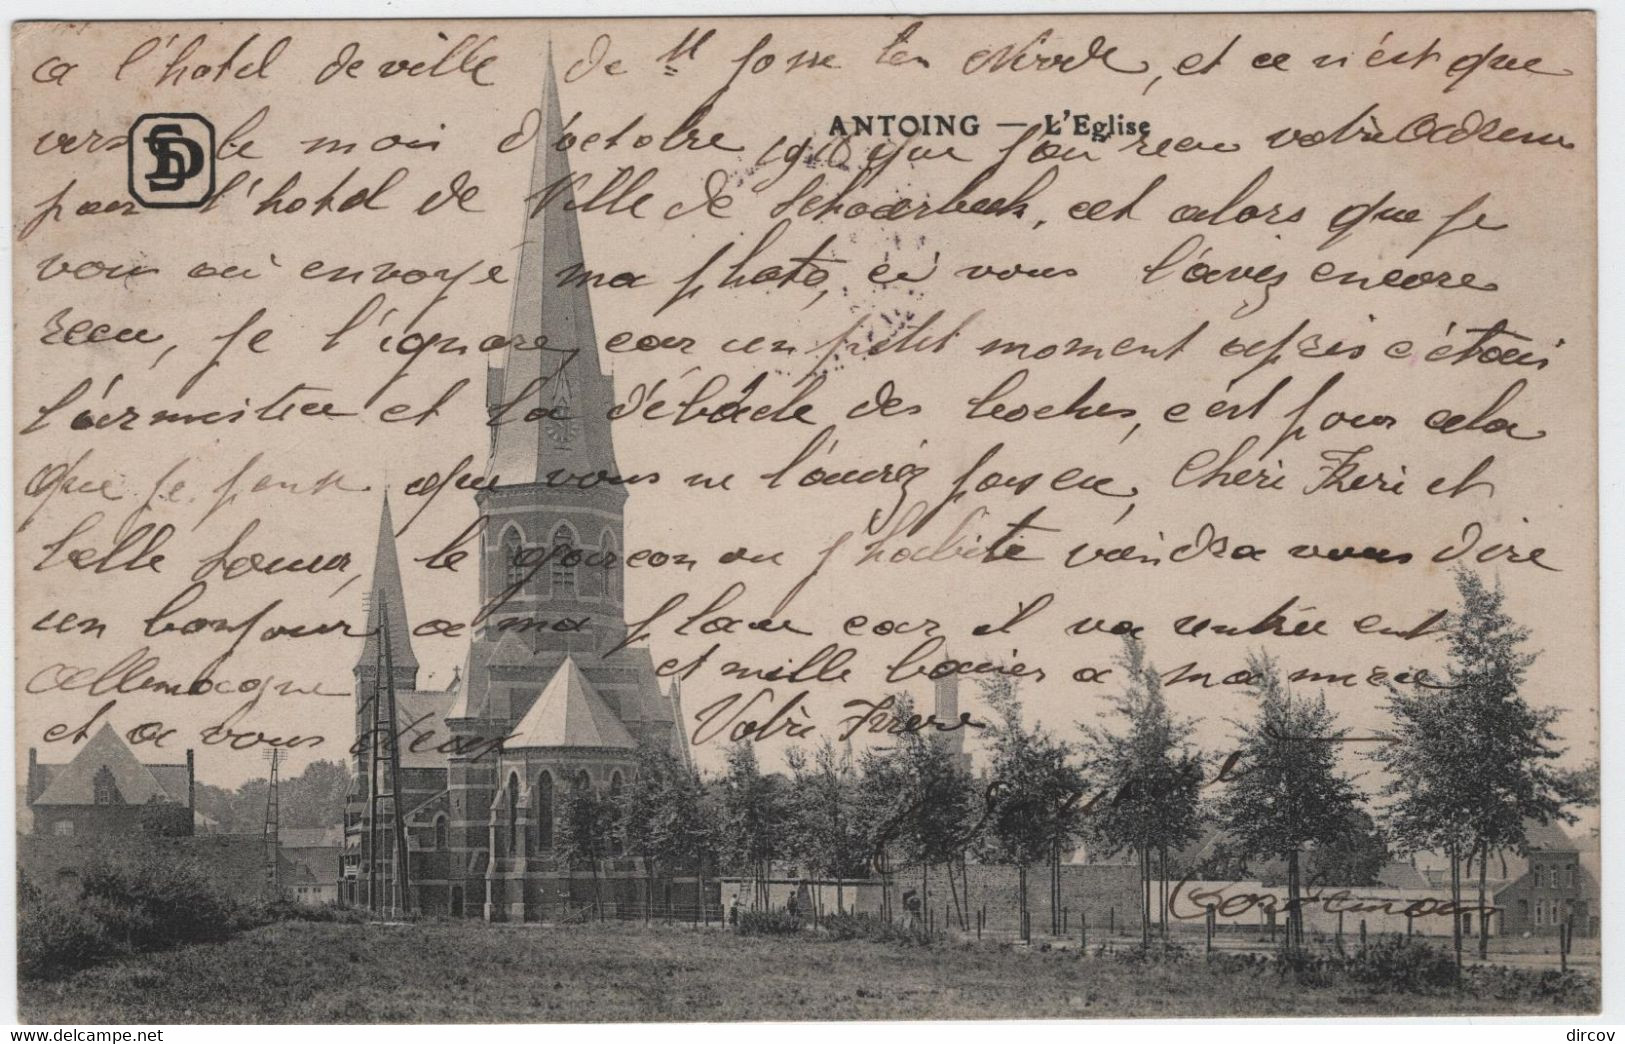 a l'hotel de ville de St Josse ten Noode, et ce n'est que
ANTOING — L'Eglise
SD
vers le mois d'octobre 1918 que j'ai recu votre Adresse
par l'hotel de Ville de Schaarbeek, et alors que je
vous ai envoye ma photo, si vous l'avez encore
recu, je l'ignore, car un petit moment apris c'étais
l'armistice et la débâcle des boches, c'est pour cela
que je pense que vous ne l'auréz pas eu, Cheri Freri et
belle Soeur, le garcon ou j'habite viendra vous dire
un bonjour a ma place car il va rentrée en
allemagne et mille baisers a ma
et a vous deux Votre Frere
dircov